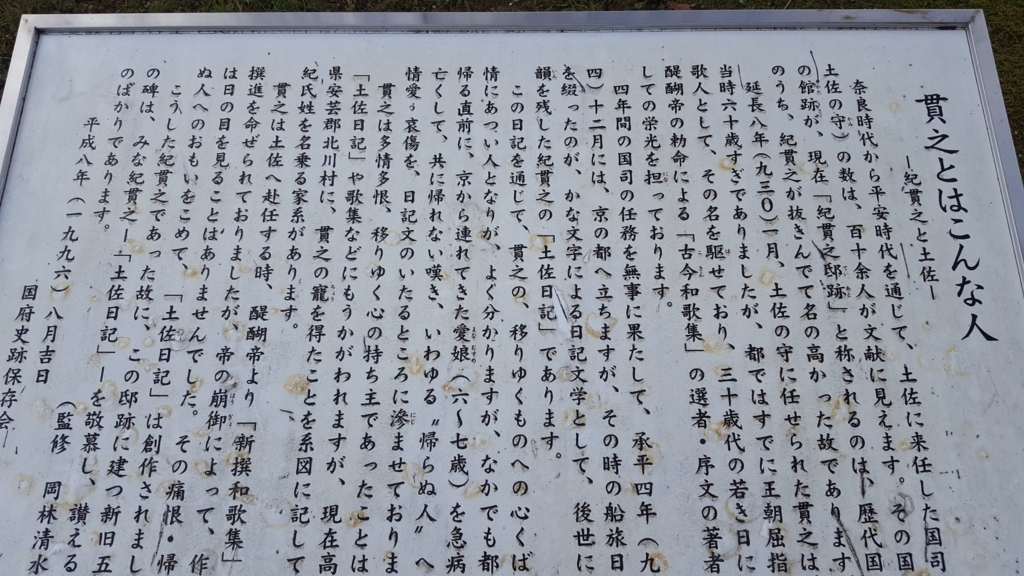 貫之とはこんな人
―紀貫之と土佐―
奈良時代から平安時代を通じて、土佐に来任した国司
土佐の守)の数は、百十余人が文献に見えます。その国
の館跡が、現在「紀貫之邸跡」と称されるのは、歴代国
のうち、紀貫之が抜きんでて名の高かった故であります
延長八年(九三〇)一月、土佐の守に任せられた貫之は
当時六十歳すぎでありましたが、都ではすでに王朝屈指
歌人として、その名を駆せており、三十歳代の若き日に
醍醐帝の勅命による「古今和歌集」の選者・序文の著者
しての栄光を担っております。
四年間の国司の任務を無事に果たして、承平四年(九
四)十二月には、京の都へ立ちますが、その時の船旅日
を綴ったのが、かな文字による日記文学として、後世に
韻を残した紀貫之の「土佐日記」であります。
この日記を通じて、貫之の、移りゆくものへの心くば
情にあつい人となりが、よく分かりますが、なかでも都
帰る直前に、京から連れてきた愛娘(六~七歳)を急病
亡くして、共に帰れない嘆き、いわゆる〝帰らぬ人〟へ
情愛・哀傷を、日記文のいたるところに滲ませておりま
貫之は多情多恨、移りゆく心の持ち主であったことは
「土佐日記」や歌集などにもうかがわれますが、現在高
県安芸郡北川村に、貫之の寵を得たことを系図に記して
紀氏姓を名乗る家系があります。
貫之は土佐へ赴任する時、醍醐帝より「新撰和歌集」
撰進を命ぜられておりましたが、帝の崩御によって、作
は日の目を見ることはありませんでした。その痛恨・帰
ぬ人へのおもいをこめて、「土佐日記」は創作されまし
こうした紀貫之であった故に、この邸跡に建つ新旧五
の碑は、みな紀貫之―「土佐日記」―を敬慕し、讃える
のばかりであります。
平成八年(一九九六)八月吉日
(監修 岡林清水
国府史跡保存会